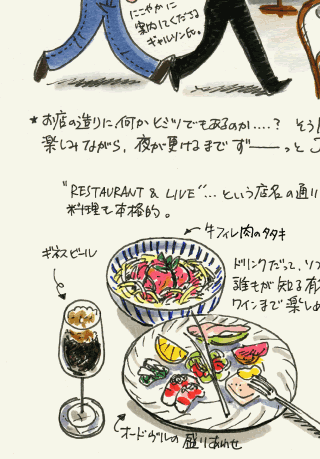 にこやかに
案内してくださる
ギャルソン氏。
★お店の造りに、何かヒミツでもあるのか‥‥?
楽しみながら、夜が更けるまで ずーーっと
"RESTAURANT & LIVE"… という店名の通り
料理も本格的。
牛フィレ肉のタタキ
ギネスビール
ドリンクだって、ソフ
誰もが知る有
ワインまで楽しめ
オードヴルの盛りあわせ